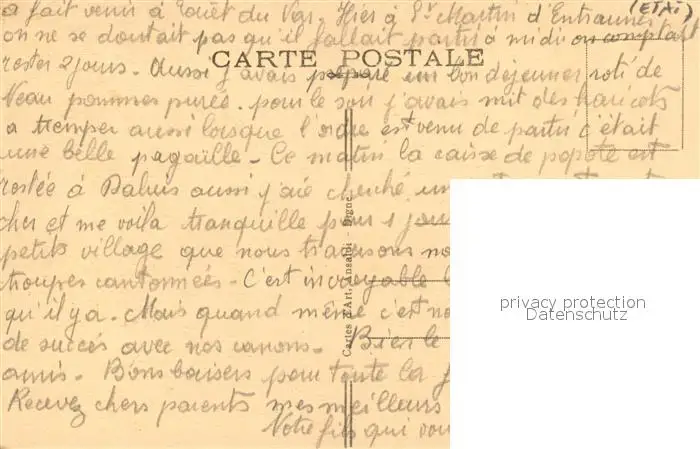 a fait venir à Touët du Var. Hier à St Martin d'Entraunes
(ETAT)
on ne se doutait pas qu'il fallait partir à midi on comptait
CARTE POSTALE
rester 2 jours. Aussi j'avais préparé un bon déjeuner roti de
Veau pommes purée. pour le soir j'avais mit des haricots
a tremper aussi lorsque l'ordre est venu de partir c'était
une belle pagaïlle. Ce matin la caisse de popote est
restée à Daluis aussi j'aie cherché un
cher et me voila tranquille pour 1 jou
petits village que nous traversons
troupes cantonnées. C'est incroyable
qu'il y a. Mais quand même c'est
de succès avec nos canons. Bien le
amis. Bons baisers pour toute la
Recevez chers parents mes meilleurs
Votre fils qui vou
Cartes d'Art, Ansaldi - Digne
privacy protection
Datenschutz